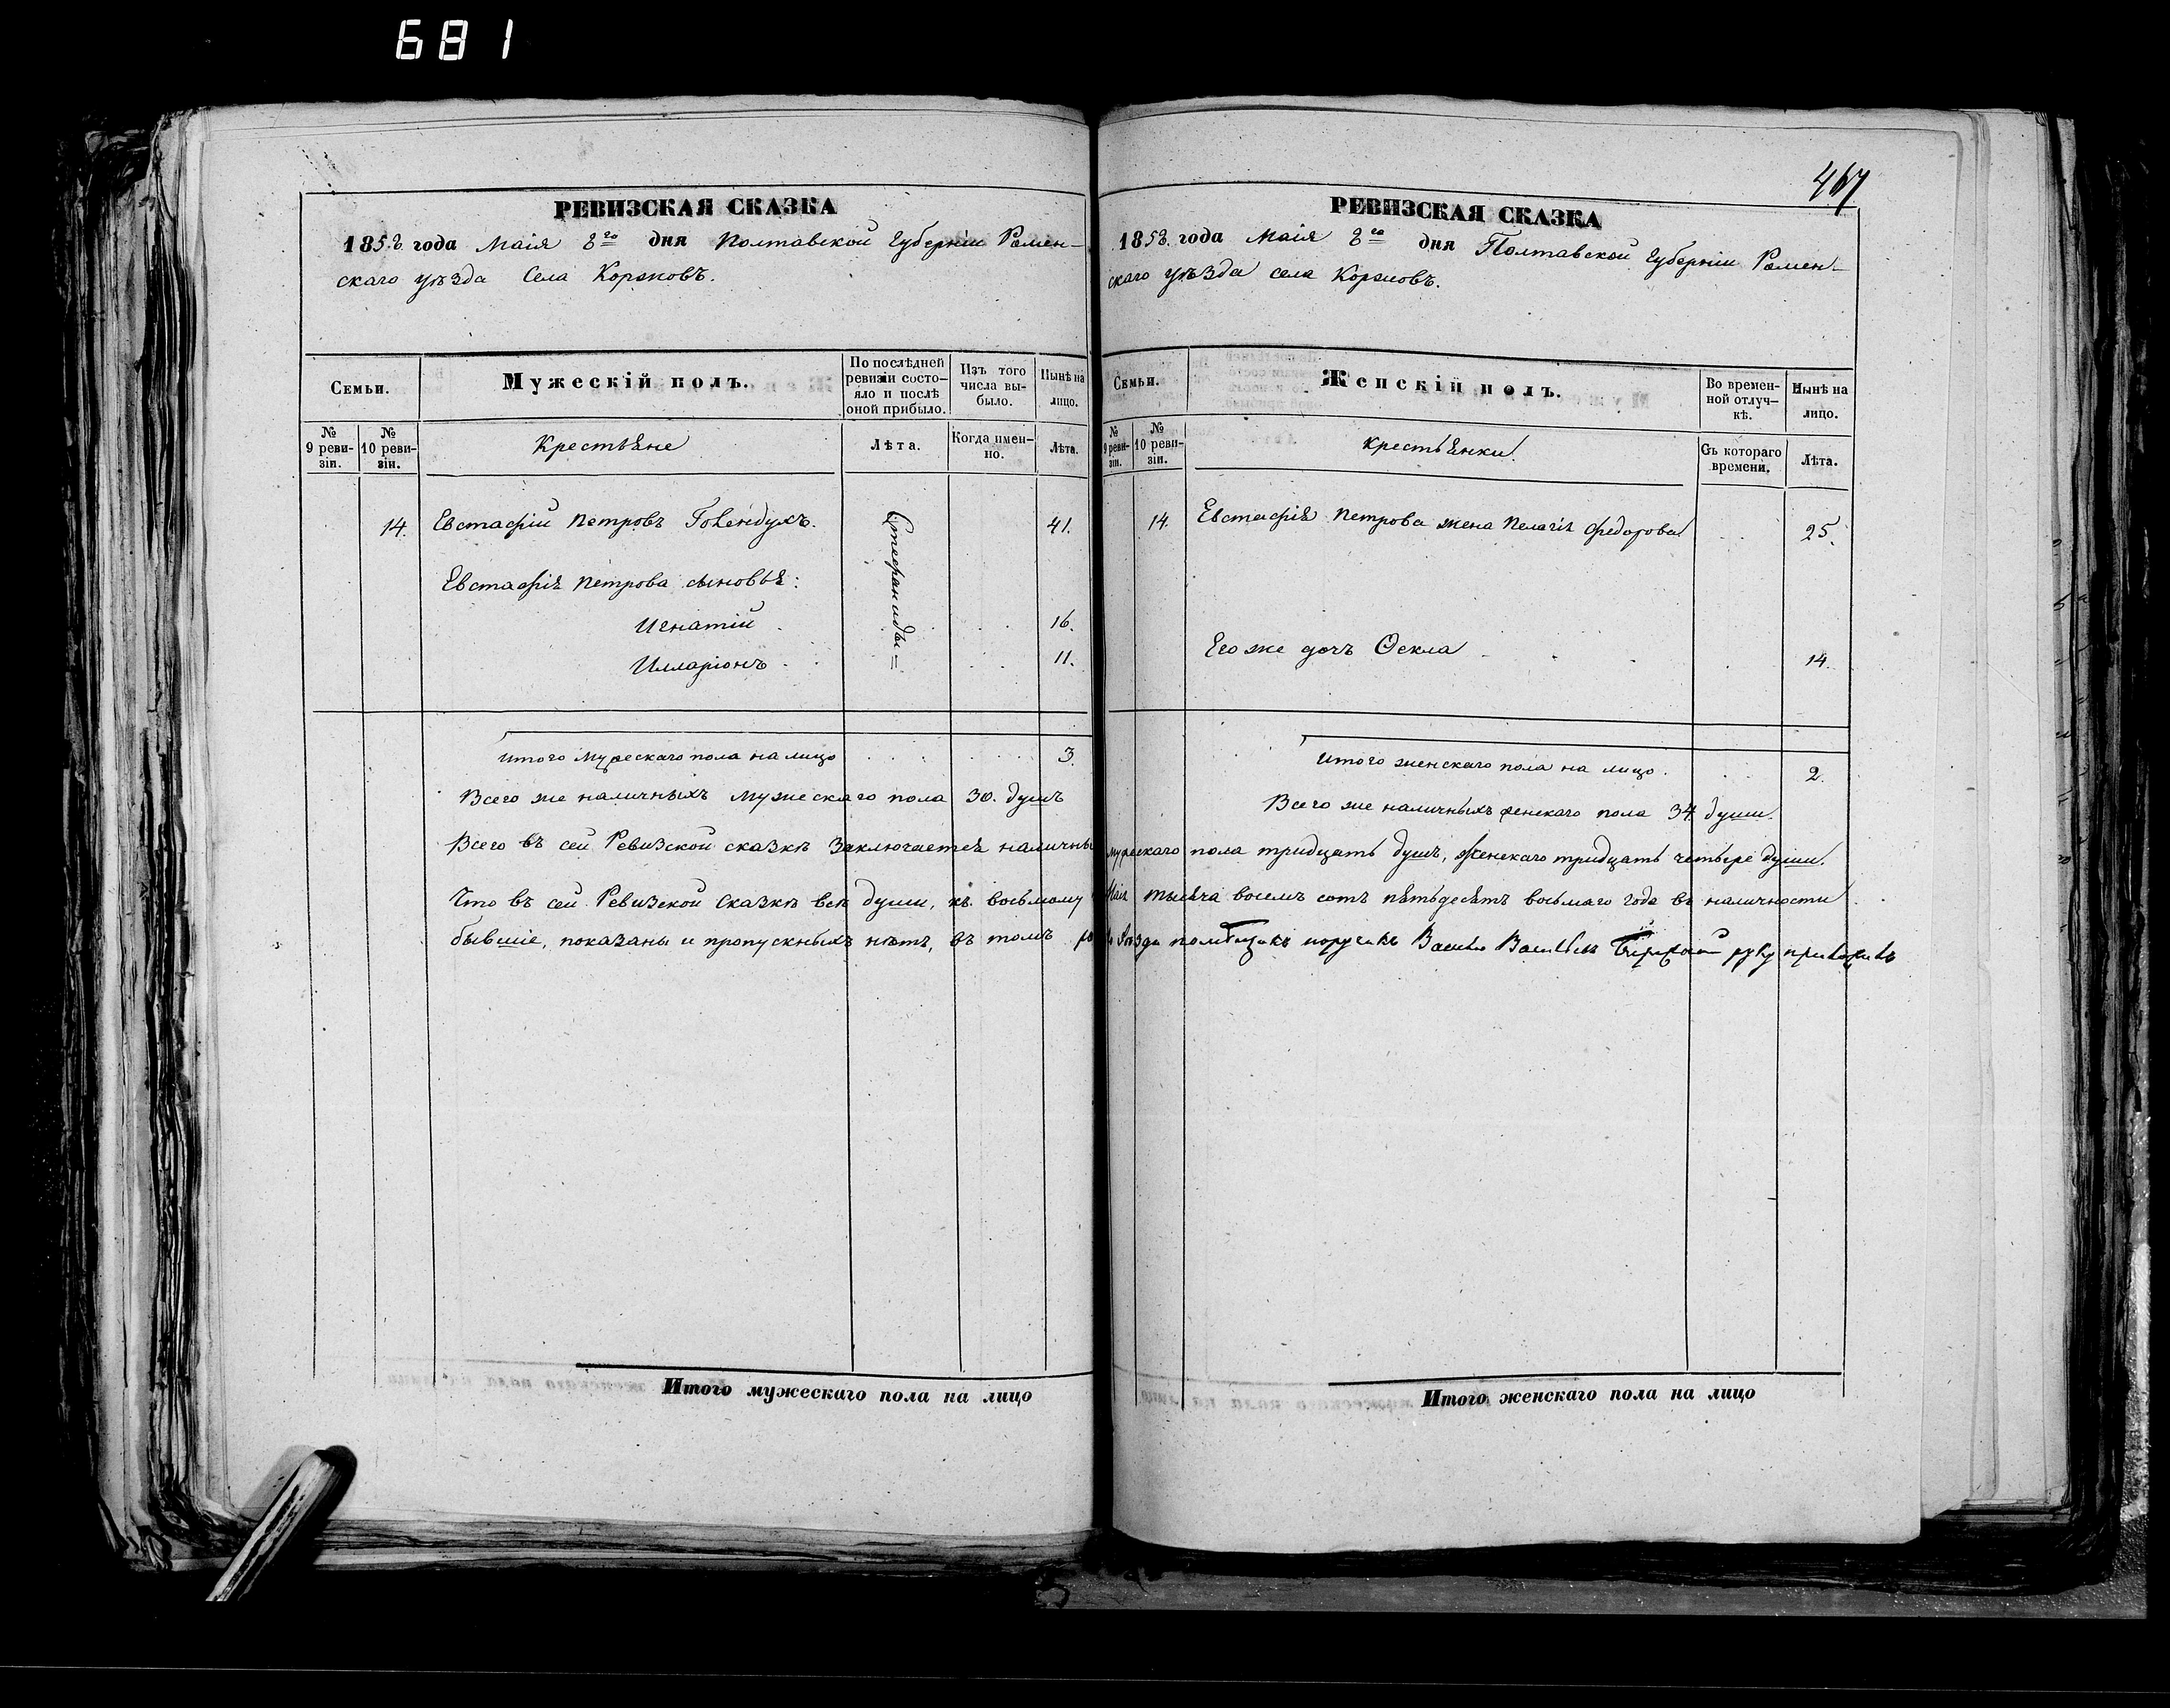 681
РЕВИЗСКАЯ СКАЗКА
1858 года Маія 8го дня Полтавской Губерніи Ромен-
скаго уѣзда Села Коржовъ.
Семьи.
Мужескій полъ.
По послѣдней ревизіи состо-яло и послѣ оной прибыло.
Изъ того числа вы-было.
Нынѣ на лицо.
№ 9 реви-зіи.
№ 10 реви-зіи.
Крестьяне
Лѣта.
Когда имен-но.
Лѣта.
14. Евстафій Петровъ 41.
Евстафія Петрова сыновья:
Игнатій 16.
Илларіонъ 11.
итого Мужескаго пола на лицо 3.
Всего же наличныхъ мужескаго пола 30. душъ
Всего въ сей Ревизской сказкѣ Заключается наличны
Что въ сей Ревизской Сказкѣ всѣ души, къ восьмому
бывшіе, показаны и пропускныхъ нѣтъ, въ томъ
Итого мужескаго пола на лицо
467
РЕВИЗСКАЯ СКАЗКА
1858. года Маія 8го дня Полтавской Губерніи Ромен-
скаго уѣзда села Коржовъ.
Семьи.
Женскій полъ.
Во времен-ной отлуч-кѣ.
Нынѣ на лицо.
№ 9 реви-зіи.
№ 10 реви-зіи.
крестьянки.
Съ котораго времени.
Лѣта.
14. Евстафія Петрова жена Пелагія Федорова 25.
Его же дочь Ѳекла 14.
Итого женскаго пола на лицо. 2.
Всего же наличныхъ женскаго пола 34 души.
мужескаго пола тридцать душъ, женскаго тридцать четыре души.
Маія тысяча восемъ сотъ пятьдесятъ восьмаго года въ наличности
помѣщикъ поручикъ Василій Васильевъ руку приложилъ
Итого женскаго пола на лицо